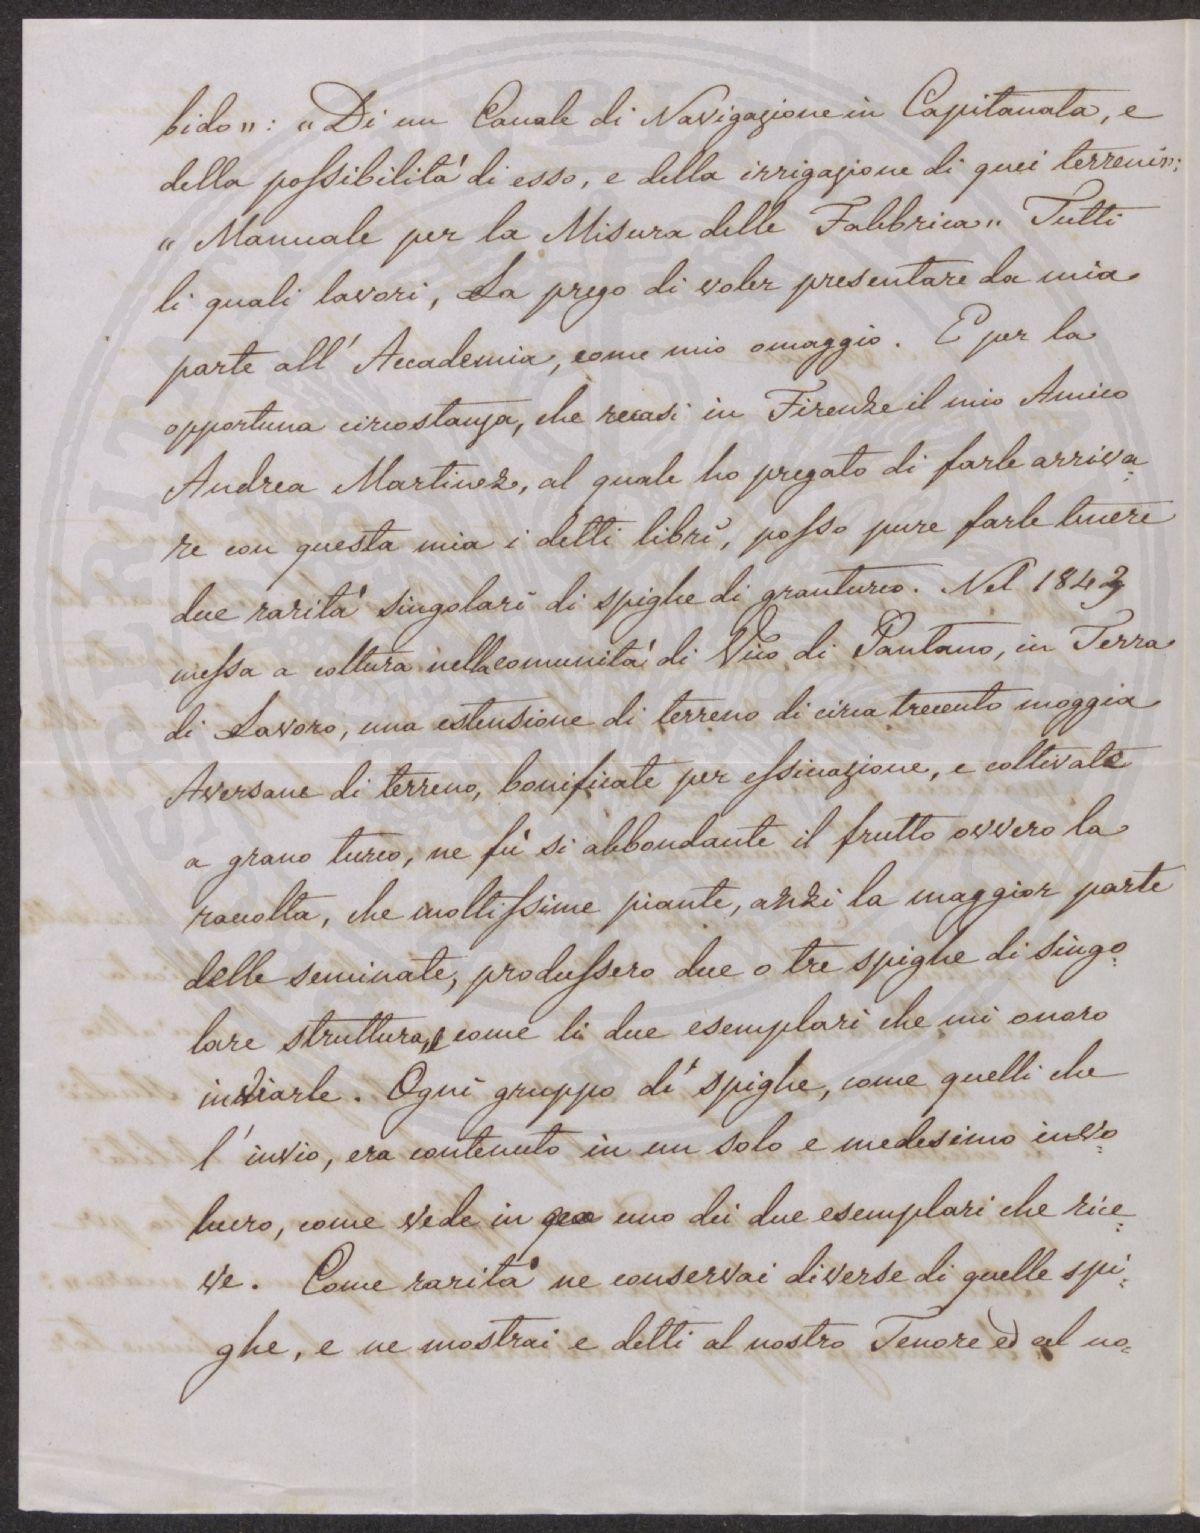 bido»: «Di un Canale di Navigazione in Capitanata, e
della possibilità di esso, e della irrigazione di quei terreni»:
« Manuale per la Misura delle Fabbrica» Tutti
li quali lavori, La prego di voler presentare da mia
parte all' Accademia, come mio omaggio. E per la
opportuna circostanza, che recasi in Firenze il mio Amico
Andrea Martinez, al quale ho pregato di farle arriva=
re con questa mia i detti libri, posso pure farle tenere
due rarità singolari di spighe di granturco. Nel 1843
messa a coltura nella comunità di Vico di Pantano, in Terra
di Lavoro, una estensione di terreno di circa trecento moggia
Aversane di terreno, bonificate per essicazione, e coltivate
a grano turco, ne fù si abbondante il frutto ovvero la
raccolta, che moltissime piante, anzi la maggior parte
delle seminate, produssero due o tre spighe di singo=
lare struttura, come li due esemplari che mi onoro
inviarle. Ogni gruppo di spighe, come quelli che
l' invio, era contenuto in un solo e medesimo invo=
lucro, come vede in uno dei due esemplari che rice=
ve. Come rarità ne conservai diverse di quelle spi=
ghe, e ne mostrai e detti al nostro Tenore ed al no=